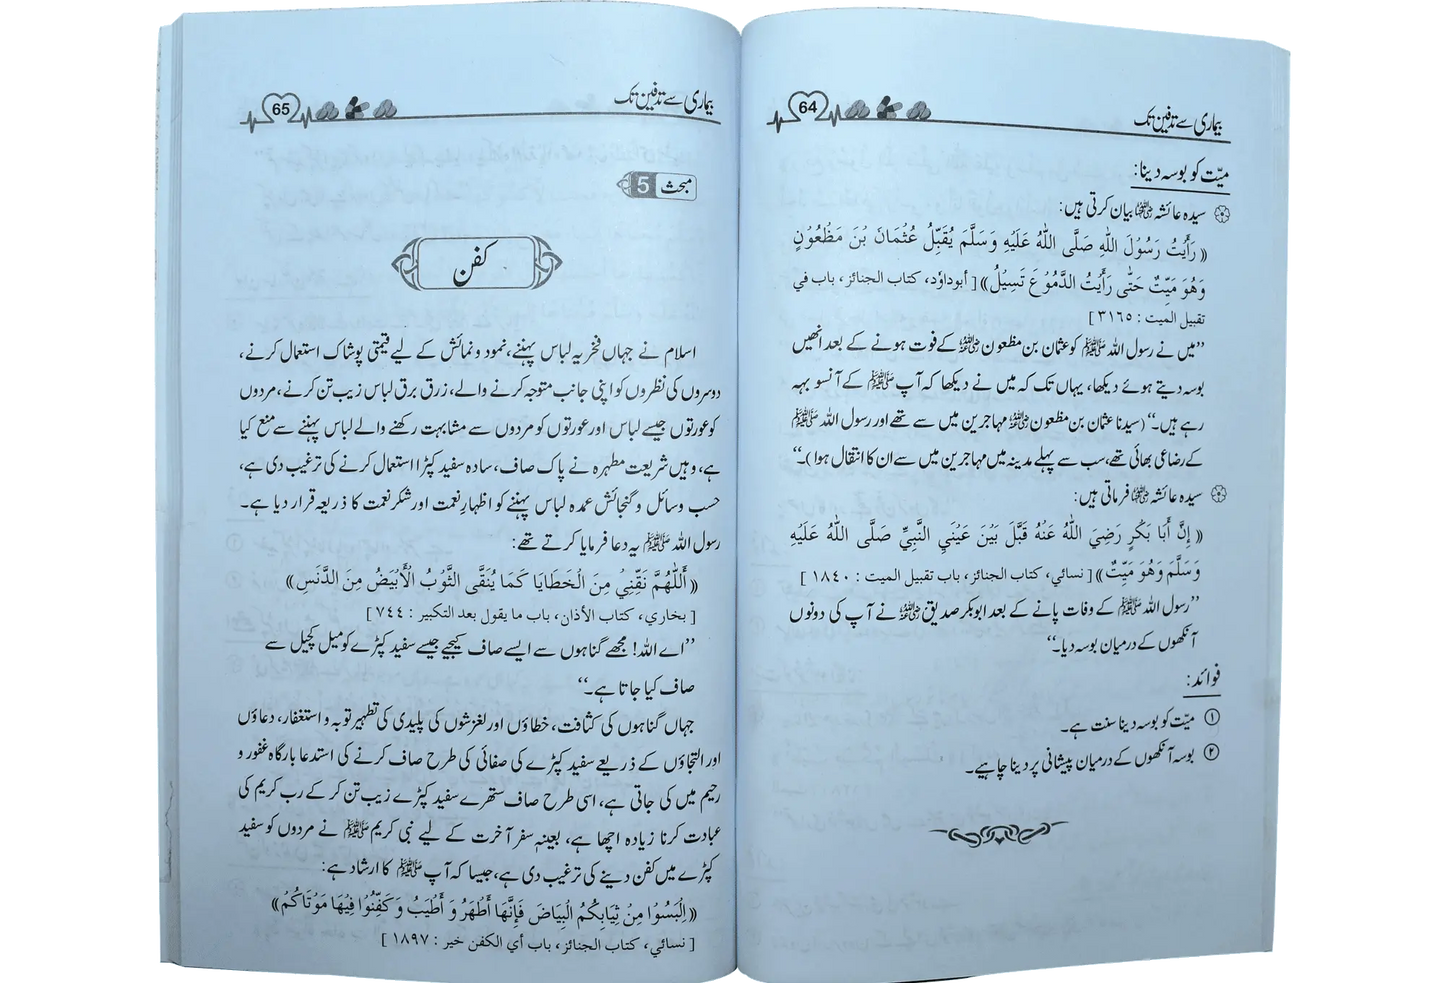 بیماری سے تدفین تک
64
میّت کو بوسہ دینا:
سیدہ عائشہ رضی اللہ عنہا بیان کرتی ہیں:
« رَأَيْتُ رَسُوْلَ اللهِ صَلَّى اللهُ عَلَيْهِ وَسَلَّمَ يُقَبِّلُ عُثْمَانَ بْنَ مَظْعُوْنٍ
وَهُوَ مَيِّتٌ حَتّٰى رَأَيْتُ الدَّمُوْعَ تَسِيْلُ» [ أبوداوٗد، كتاب الجنائز، باب في
تقبيل الميت : ٣١٦٥ ]
’’میں نے رسول اللہ ﷺ کو عثمان بن مظعون رضی اللہ عنہ کے فوت ہونے کے بعد انھیں
بوسہ دیتے ہوئے دیکھا، یہاں تک کہ میں نے دیکھا کہ آپ ﷺ کے آنسو بہہ
رہے ہیں۔‘‘ (سیدنا عثمان بن مظعون رضی اللہ عنہ مہاجرین میں سے تھے اور رسول اللہ ﷺ
کے رضاعی بھائی تھے، سب سے پہلے مدینہ میں مہاجرین میں سے ان کا انتقال ہوا)۔‘‘
سیدہ عائشہ رضی اللہ عنہا فرماتی ہیں:
« إِنَّ أَبَا بَكْرٍ رَضِيَ اللهُ عَنْهُ قَبَّلَ بَيْنَ عَيْنَيِ النَّبِيِّ صَلَّى اللهُ عَلَيْهِ
وَسَلَّمَ وَهُوَ مَيِّتٌ» [ نسائي، كتاب الجنائز، باب تقبيل الميت : ١٨٤٠ ]
’’رسول اللہ ﷺ کے وفات پانے کے بعد ابوبکر صدیق رضی اللہ عنہ نے آپ کی دونوں
آنکھوں کے درمیان بوسہ دیا۔‘‘
فوائد:
① میّت کو بوسہ دینا سنت ہے۔
② بوسہ آنکھوں کے درمیان پیشانی پر دینا چاہیے۔
بیماری سے تدفین تک
65
مبحث 5
کفن
اسلام نے جہاں فخریہ لباس پہننے، نمود و نمائش کے لیے قیمتی پوشاک استعمال کرنے،
دوسروں کی نظروں کو اپنی جانب متوجہ کرنے والے، زرق برق لباس زیب تن کرنے، مردوں
کو عورتوں جیسے لباس اور عورتوں کو مردوں سے مشابہت رکھنے والے لباس پہننے سے منع کیا
ہے، وہیں شریعت مطہرہ نے پاک صاف، سادہ سفید کپڑا استعمال کرنے کی ترغیب دی ہے،
حسب وسائل و گنجائش عمدہ لباس پہننے کو اظہارِ نعمت اور شکر نعمت کا ذریعہ قرار دیا ہے۔
رسول اللہ ﷺ یہ دعا فرمایا کرتے تھے:
« أَللّٰهُمَّ نَقِّنِيْ مِنَ الْخَطَايَا كَمَا يُنَقَّى الثَّوْبُ الْأَبْيَضُ مِنَ الدَّنَسِ»
[ بخاري، كتاب الأذان، باب ما يقول بعد التكبير : ٧٤٤ ]
’’اے اللہ! مجھے گناہوں سے ایسے صاف کیجیے جیسے سفید کپڑے کو میل کچیل سے
صاف کیا جاتا ہے۔‘‘
جہاں گناہوں کی کثافت، خطاؤں اور لغزشوں کی پلیدی کی تطہیر توبہ و استغفار، دعاؤں
اور التجاؤں کے ذریعے سفید کپڑے کی صفائی کی طرح صاف کرنے کی استدعا بارگاہ غفور و
رحیم میں کی جاتی ہے، اسی طرح صاف ستھرے سفید کپڑے زیب تن کر کے رب کریم کی
عبادت کرنا زیادہ اچھا ہے، بعینہ سفر آخرت کے لیے نبی کریم ﷺ نے مردوں کو سفید
کپڑے میں کفن دینے کی ترغیب دی ہے، جیسا کہ آپ ﷺ کا ارشاد ہے:
« اِلْبَسُوْا مِنْ ثِيَابِكُمُ الْبِيَاضَ فَإِنَّهَا أَطْهَرُ وَ أَطْيَبُ وَ كَفِّنُوْا فِيْهَا مَوْتَاكُمْ»
[ نسائي، كتاب الجنائز، باب أي الكفن خير : ١٨٩٧ ]